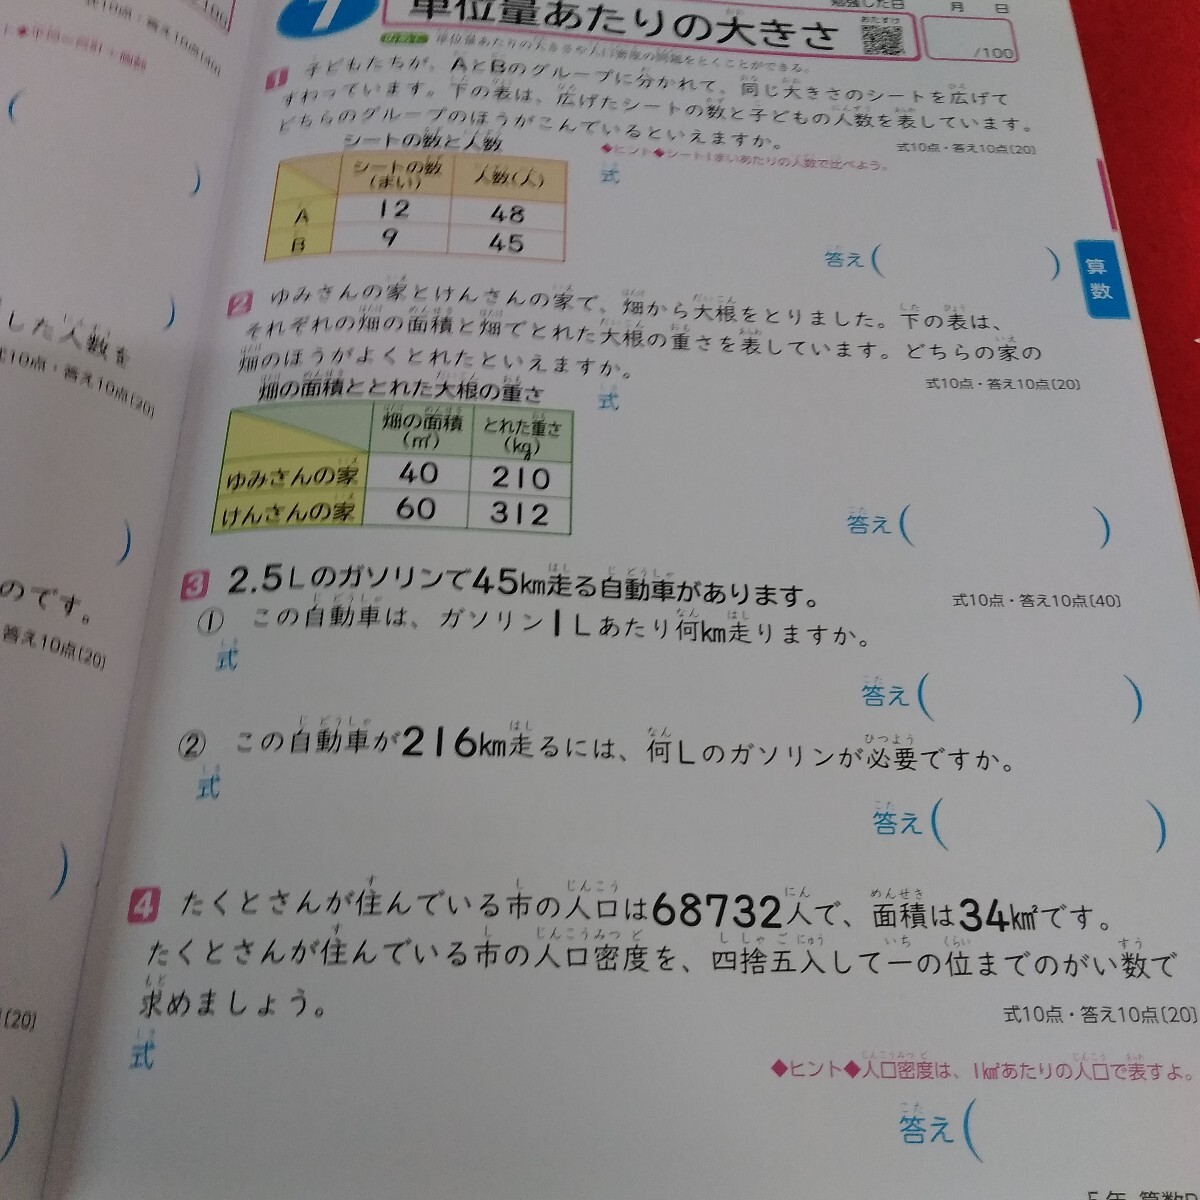 勉強した日 月 日
7 単位量あたりの大きさ
/100
単位量あたりの大きさや人口密度の問題をとくことができる。
1 子どもたちが、AとBのグループに分かれて、同じ大きさのシートを広げて
すわっています。下の表は、広げたシートの数と子どもの人数を表しています。
どちらのグループのほうがこんでいるといえますか。
式10点・答え10点〔20〕
シートの数と人数
◆ヒント◆シート1まいあたりの人数で比べよう。
シートの数(まい) 人数(人)
A 12 48
B 9 45
式
答え( )
算数
2 ゆみさんの家とけんさんの家で、畑から大根をとりました。下の表は、
それぞれの畑の面積と畑でとれた大根の重さを表しています。どちらの家の
畑のほうがよくとれたといえますか。
式10点・答え10点〔20〕
畑の面積ととれた大根の重さ
畑の面積(㎡) とれた重さ(kg)
ゆみさんの家 40 210
けんさんの家 60 312
式
答え( )
3 2.5Lのガソリンで45km走る自動車があります。
式10点・答え10点〔40〕
① この自動車は、ガソリン1Lあたり何km走りますか。
式
答え( )
② この自動車が216km走るには、何Lのガソリンが必要ですか。
式
答え( )
4 たくとさんが住んでいる市の人口は68732人で、面積は34km²です。
たくとさんが住んでいる市の人口密度を、四捨五入して一の位までのがい数で
求めましょう。
式10点・答え10点〔20〕
式
◆ヒント◆人口密度は、1km²あたりの人口で表すよ。
答え(
5年 算数
した人数を
答え10点〔20〕
のです。
答え10点〔20〕
〔20〕